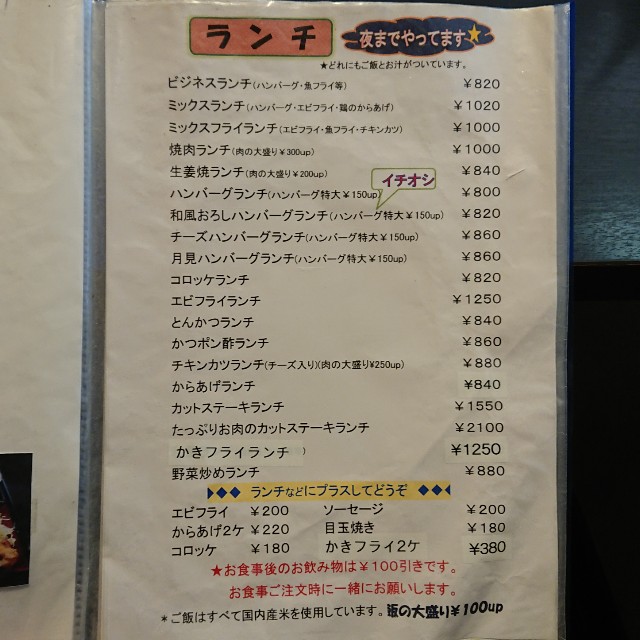 ランチ 夜までやってます★
★どれにもご飯とお汁がついています。
ビジネスランチ(ハンバーグ・魚フライ等) ¥820
ミックスランチ(ハンバーグ・エビフライ・鶏のからあげ) ¥1020
ミックスフライランチ(エビフライ・魚フライ・チキンカツ) ¥1000
焼肉ランチ(肉の大盛り¥300up) ¥1000
生姜焼ランチ(肉の大盛り¥200up) ¥840
イチオシ
ハンバーグランチ(ハンバーグ特大¥150up) ¥800
和風おろしハンバーグランチ(ハンバーグ特大¥150up) ¥820
チーズハンバーグランチ(ハンバーグ特大¥150up) ¥860
月見ハンバーグランチ(ハンバーグ特大¥150up) ¥860
コロッケランチ ¥820
エビフライランチ ¥1250
とんかつランチ ¥840
かつポン酢ランチ ¥860
チキンカツランチ(チーズ入り)(肉の大盛り¥250up) ¥880
からあげランチ ¥840
カットステーキランチ ¥1550
たっぷりお肉のカットステーキランチ ¥2100
かきフライランチ ) ¥1250
野菜炒めランチ ¥880
ランチなどにプラスしてどうぞ
エビフライ ¥200 ソーセージ ¥200
からあげ2ケ ¥220 目玉焼き ¥180
コロッケ ¥180 かきフライ2ケ ¥380
★お食事後のお飲み物は¥100引きです。
お食事ご注文時に一緒にお願いします。
*ご飯はすべて国内産米を使用しています。飯の大盛り¥100up